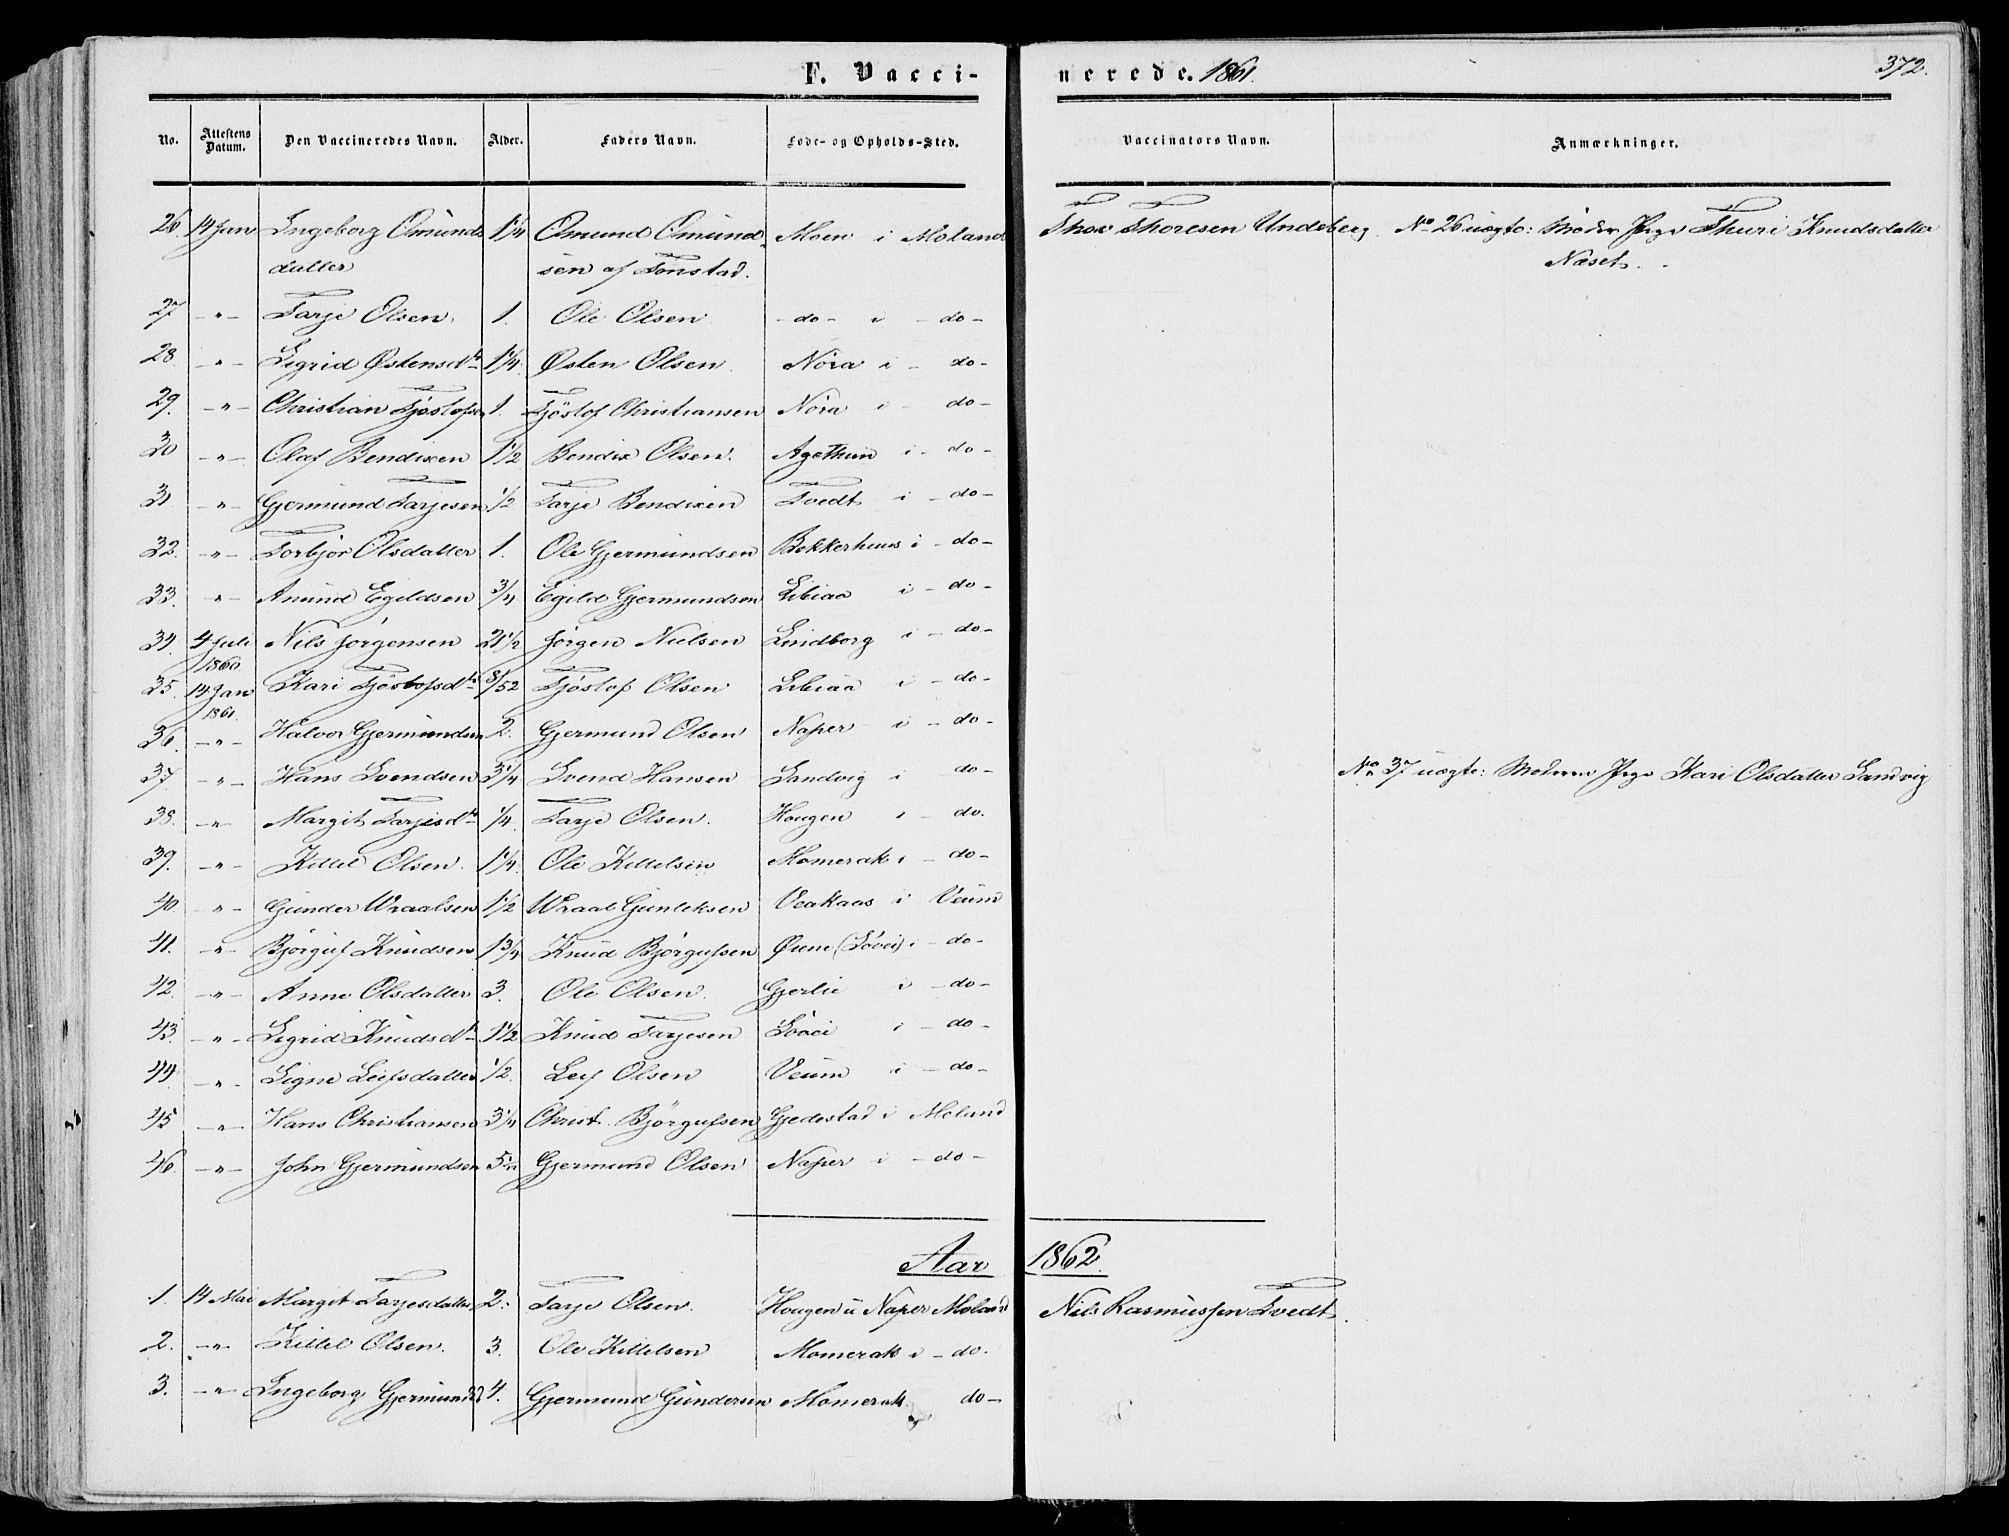 F. Vacci-
nerede. 1861.
372.
No. Attestens Datum. Den Vaccineredes Navn. Alder. Faders Navn. Føde- og Opholds-Sted. Vaccinators Navn. Anmærkninger.
26. 14 Jan Ingeborg Omunds 1 1/4 Omund Omund Moen i Moland Thor Thoresen Undeberg. No 26 uægte: Moder Pige Thuri Knudsdatter
datter sen af Tonstad. Næset.
27 -"- Tarje Olsen. 1. Ole Olsen -do- i -do-
28 -"- Sigrid Østensdtr 1 1/4. Østen Olsen. Nóra i - do-
29. -"- Christian Tjöstofsn 1. Tjöstof Christiansen Nóra i - do-
30 -"- Olaf Bendixen 1 1/2 Bendix Olsen. Agethun i - do-
31 -"- Gjermund Tarjesen 1/2 Tarje Bendixen Tvedt i - do-
32. -"- Torbjör Olsdatter 1. Ole Gjermundsen Bekkerhuus i - do-
33. -"- Anund Egildsen 3/4 Egild Gjermundsen Libiaa i - do-
34. 4 Juli Nils Jörgensen 21 1/2 Jörgen Nielsen Lindborg i - do-
1860
35. 14 Jan Kari Tjöstofsdtr 8/52 Tjöstof Olsen Libiaa i - do-
1861.
36. -"- Halvor Gjermundsen 2. Gjermund Olsen Naper i - do-
37. -"- Hans Svendsen 3 1/4 Svend Hansen Sandvig i do- No 37 uægte: Moderen Pige Kari Olsdatter Sandvig
38. -"- Margit Tarjesdtr 1/4. Tarje Olsen. Hougen i - do.
39. -"- Kittel Olsen. 1 1/4. Ole Kittelsen Momerak i - do-
40. -"- Gunder Wraalsen 1 1/2 Wraal Gunleksen Veakaas i Veum
41. -"- Björguf Knudsen 1 3/4 Knud Björgufsen Øine (Lövei) i - do-
42. -"- Anne Olsdatter 3. Ole Olsen. Gjerlie i - do-
43. -"- Sigrid Knudsdtr 1 1/2 Knud Tarjesen i - do-
44 -"- Signe Leifsdatter 1/2. Leif Olsen Veum i - do-
45 -"- Hans Christiansen 3 1/4 Christ. Björgufsen Gjedestad i Moland
46. -"- John Gjermundsen Gjermund Olsen Naper i - do-
Aar 1862.
1. 14 Mai Margit Tarjesdatter 2. Tarje Olsen. Hougen u Naper Moland Nils Rasmussen Tvedt.
2. -"- Kittel Olsen. 3. Ole Kittelsen Momerak i - do.
3. -"- Ingeborg Gjermundsd 4. Gjermund Gundersen Momerak do-